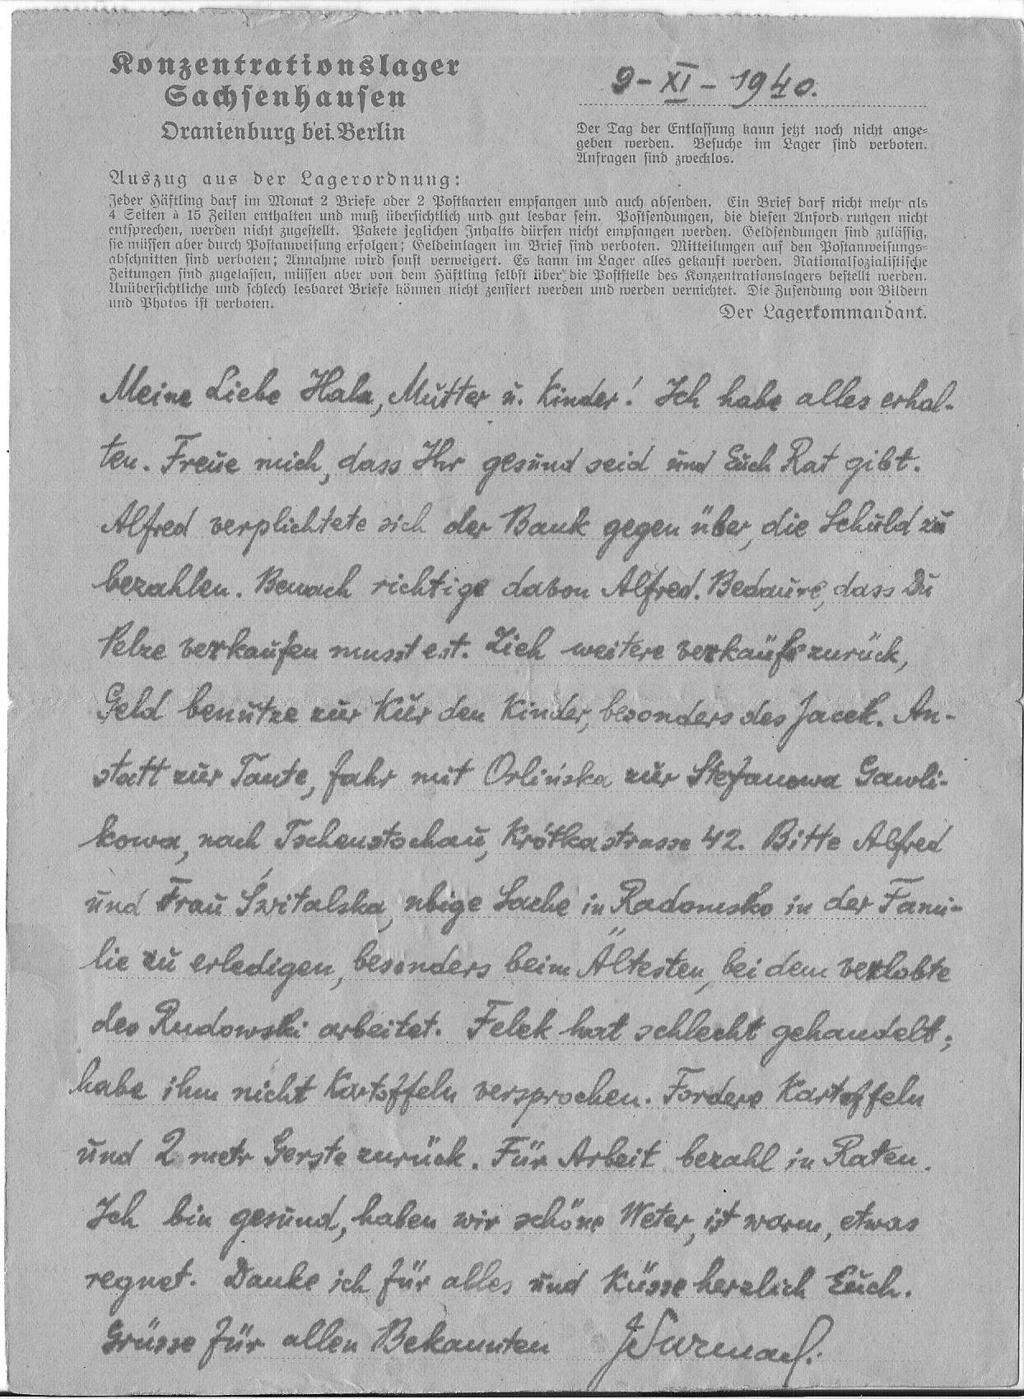 Konzentrationslager
Sachsenhausen
Oranienburg bei Berlin
9-XI-1940.
Der Tag der Entlassung kann jetzt noch nicht ange-
geben werden. Besuche im Lager sind verboten.
Anfragen sind zwecklos.
Auszug aus der Lagerordnung:
Jeder Häftling darf im Monat 2 Briefe oder 2 Postkarten empfangen und auch absenden. Ein Brief darf nicht mehr als
4 Seiten à 15 Zeilen enthalten und muß übersichtlich und gut lesbar sein. Postsendungen, die diesen Anford rungen nicht
entsprechen, werden nicht zugestellt. Pakete jeglichen Inhalts dürfen nicht empfangen werden. Geldsendungen sind zulässig,
sie müssen aber durch Postanweisung erfolgen; Geldeinlagen im Brief sind verboten. Mitteilungen auf den Postanweisungs-
abschnitten sind verboten; Annahme wird sonst verweigert. Es kann im Lager alles gekauft werden. Nationalsozialistische
Zeitungen sind zugelassen, müssen aber von dem Häftling selbst über die Poststelle des Konzentrationslagers bestellt werden.
Unübersichtliche und schlech lesbaret Briefe können nicht zensiert werden und werden vernichtet. Die Zusendung von Bildern
und Photos ist verboten.
Der Lagerkommandant.
Meine Liebe Hala, Mutter u. Kinder! Ich habe alles erhal-
ten. Freue mich, dass Ihr gesund seid und Euch Rat gibt.
Alfred verplichtete sich der Bank gegen über, die Schuld zu
bezahlen. richtige davon Alfred. Bedaure, dass Du
Pelze verkaufen musstest. Zieh weitere verkäufe zurück,
Geld benutze zur Kur den Kinder, besonders des Jacek. An-
statt zur Tante, fahr mit Orlińska zur Stefanowa Gawli-
kowa, nach Tschenstochau, Krótkastrasse 42. Bitte Alfred
und Frau Świtalska, Sache in Radomsko in der Fami-
lie zu erledigen, besonders beim Ältesten, bei dem verlobte
des Rudowski arbeitet. Felek hat schlecht gehandelt;
habe ihm nicht Kartoffeln versprochen. Fordere Kartoffeln
und 2 metr Gerste zurück. Für Arbeit bezahl in Raten.
Ich bin gesund, haben wir schöne Weter, ist warm, etwas
regnet. Danke ich für alles und Küsse herzlich Euch.
Grüsse für allen Bekannten